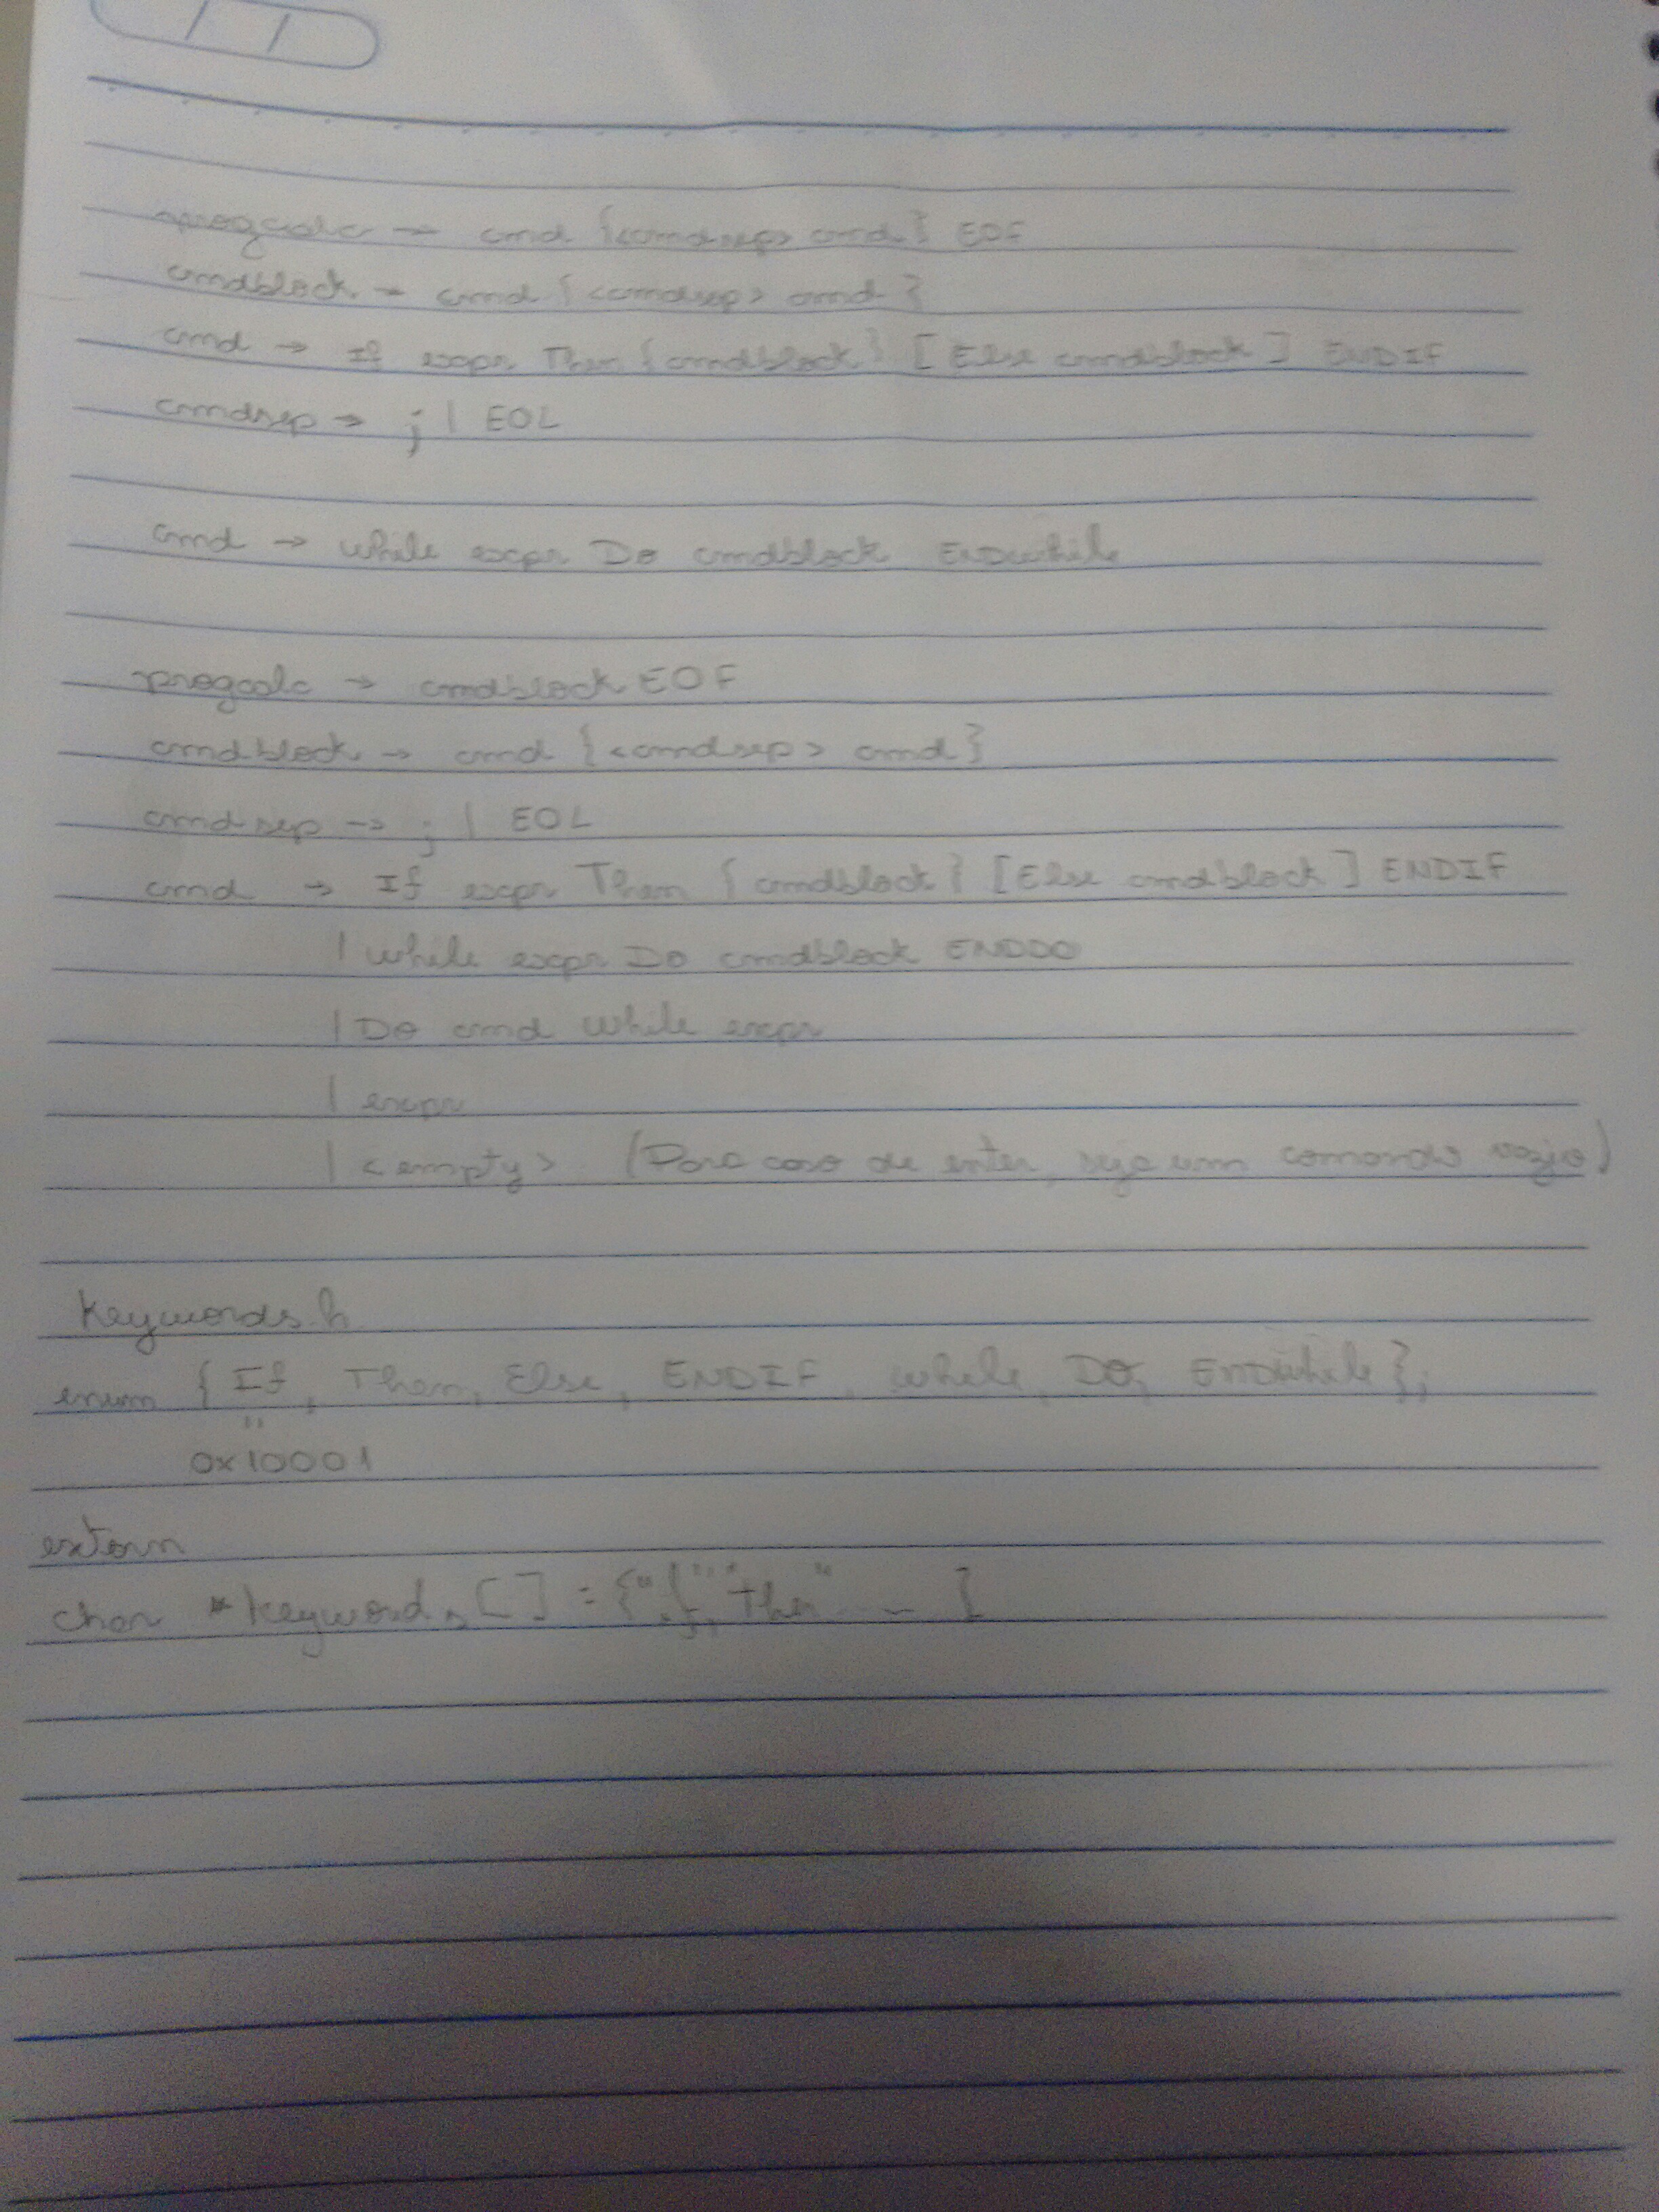 progcalc → cmd {<cmdsep> cmd} EOF
cmdblock → cmd {<cmdsep> cmd}
cmd → If expr Then {cmdblock} [Else cmdblock] ENDIF
cmdsep → ; | EOL
cmd → while expr Do cmdblock ENDwhile
progcalc → cmdblock EOF
cmdblock → cmd {<cmdsep> cmd}
cmdsep → ; | EOL
cmd → If expr Then {cmdblock} [Else cmdblock] ENDIF
| while expr Do cmdblock ENDDO
| Do cmd while expr
| expr
| <empty> (Para caso de enter, seja um comando vazio)
Keywords.h
enum {If, Then, Else, ENDIF, while, DO, ENDwhile};
"
0x10001
extern
char *keywords[] = {"if", "then" ... ]